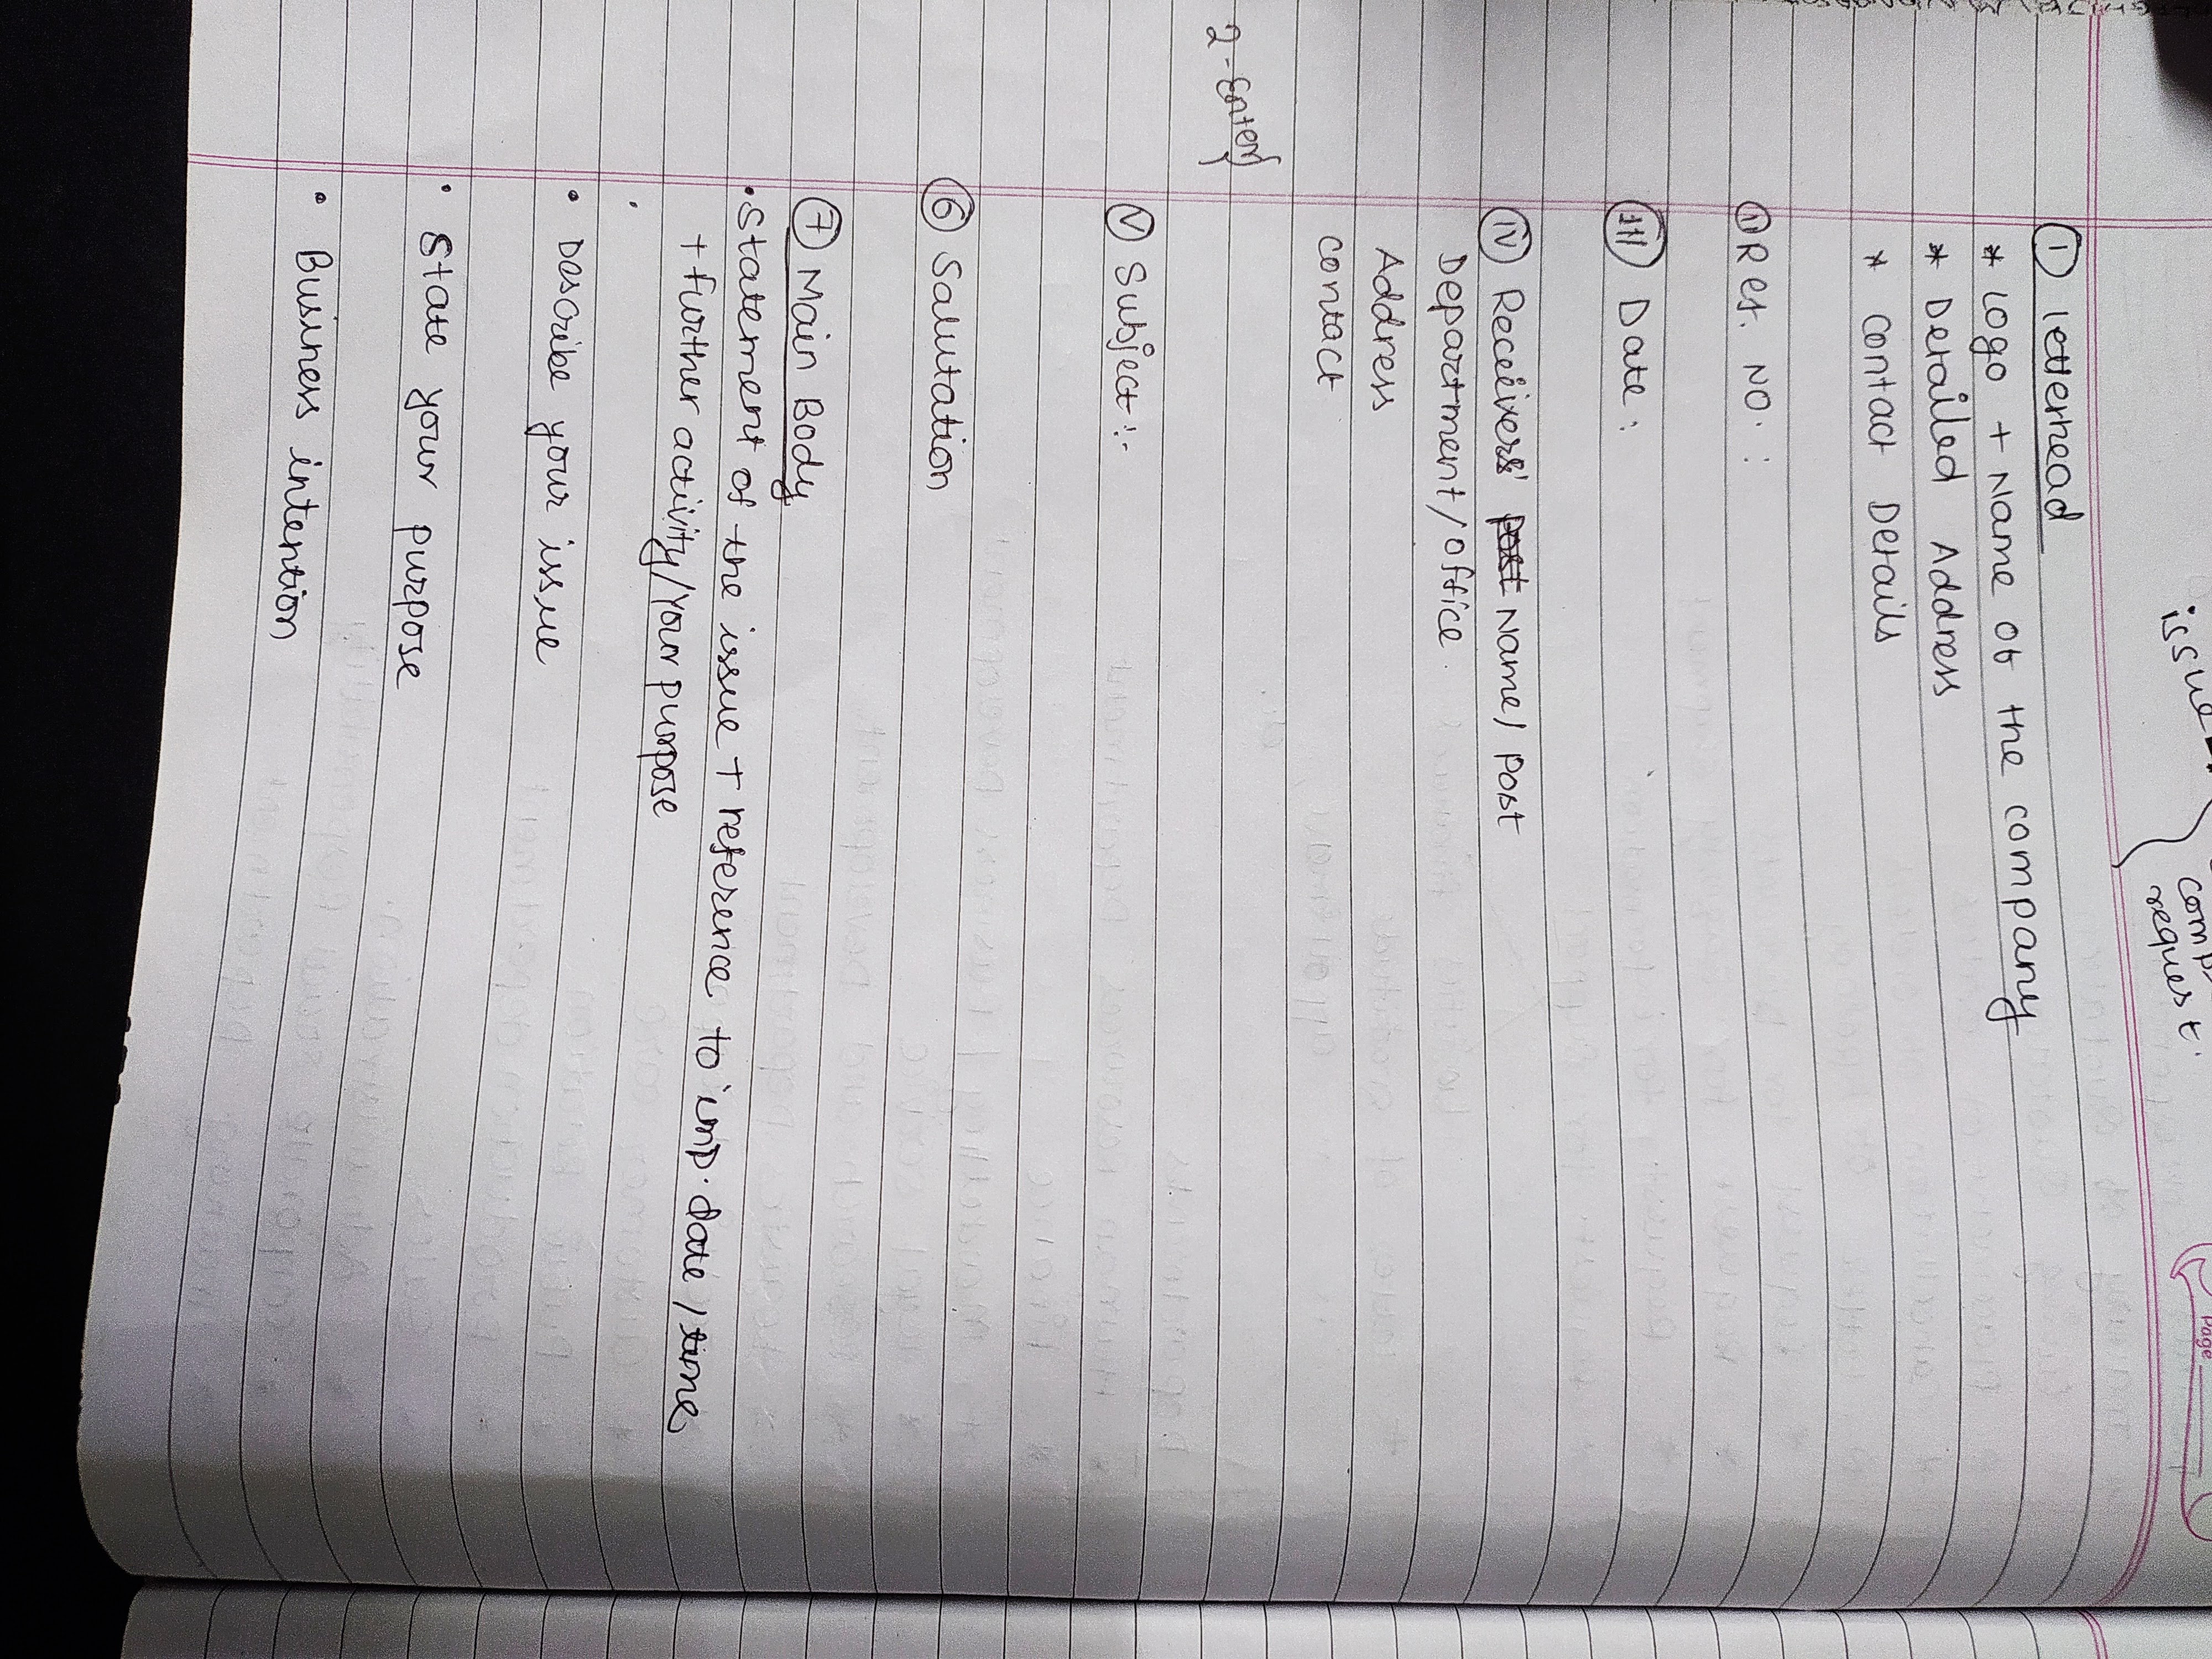 issue
comp
request.
Page
① letterhead
* Logo + Name of the company
* Detailed Address
* Contact Details
Ref. No. :
III Date :
IV Receivers' Name/ Post
Department/office.
Address
Contact
2-Enter
V Subject :-
⑥ Salutation
⑦ Main Body
• Statement of the issue + reference to imp. date / time
+ further activity/your purpose
• Describe your issue
• State your purpose
• Business intention